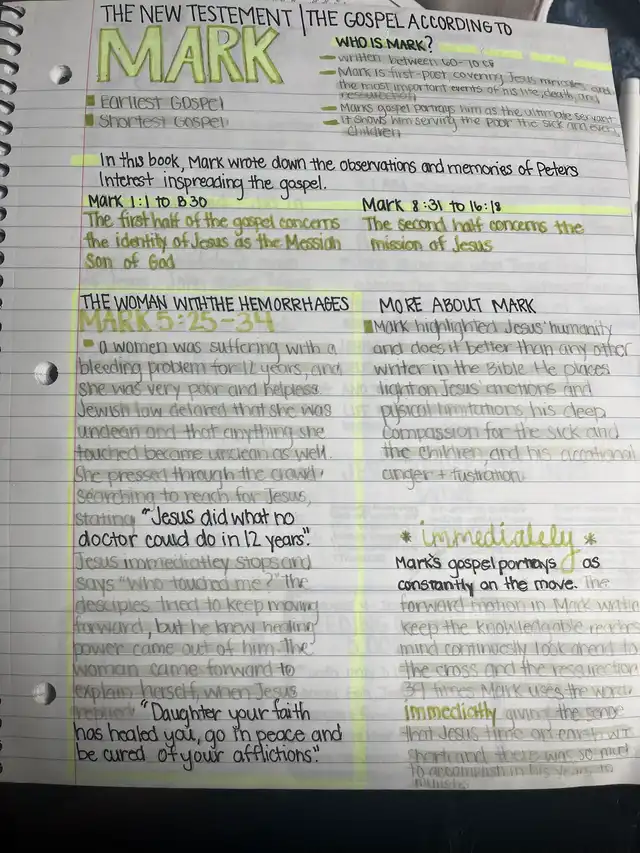 THE NEW TESTEMENT | THE GOSPEL ACCORDING TO
MARK
Earliest Gospel
Shortest Gospel
WHO IS MARK?
written between 60-70
Mark is first-poet covering Jesus miricales and
the most important events of his life, death, and
ressurection
Marks gospel portrays him as the ultimate servant
it shows him serving the poor the sick and even
children
In this book, Mark wrote down the observations and memories of Peters
Interest inspreading the gospel.
Mark 1:1 to 8:30
The first half of the gospel concerns
the identity of Jesus as the Messiah
Son of God
Mark 8:31 to 16:18
The second half concerns the
mission of Jesus
THE WOMAN WITH THE HEMORRHAGES
MARK 5:25-34
a women was suffering with a
bleeding problem for 12 years, and
she was very poor and helpless.
Jewish law delared that she was
unclean and that anything she
touched became unclean as well.
She pressed through the crowd
searching to reach for Jesus,
stating "Jesus did what no
doctor could do in 12 years".
Jesus immediatley stops and
says "who touched me?" the
desciples tried to keep moving
forward, but he knew healing
power came out of him. The
woman came forward to
explain herself, when Jesus
replied "Daughter your faith
has healed you, go in peace and
be cured of your afflictions".
MORE ABOUT MARK
Mark highlighted Jesus' humanity
and does it better than any other
writer in the Bible. He places
light on Jesus' emotions and
pysical limitations his deep
compassion for the sick and
the children, and his
anger + fustration
*immediately*
Mark's gospel portrays as
constantly on the move. The
forward motion in Mark writing
keep the knowledgable readers
mind continuosly look ahead to
the cross and the ressurection
39 times Mark uses the word
immediatly giving the sense
that Jesus time on earth was
short and there was so much
to accomplish in his years to